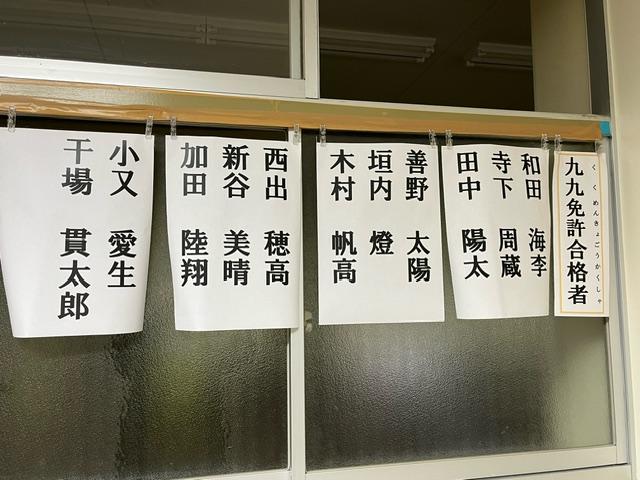 くくめんきょごうかくしゃ
九九免許合格者
和田 海李
寺下 周蔵
田中 陽太
善野 太陽
垣内 燈
木村 帆高
西出 穂高
新谷 美晴
加田 陸翔
小又 愛生
干場 貫太郎